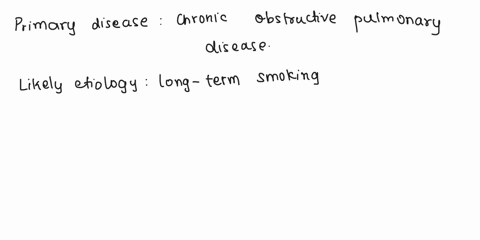 Primary disease : Chronic obstructive pulmonary
disease.
Likely etiology : long-term smoking